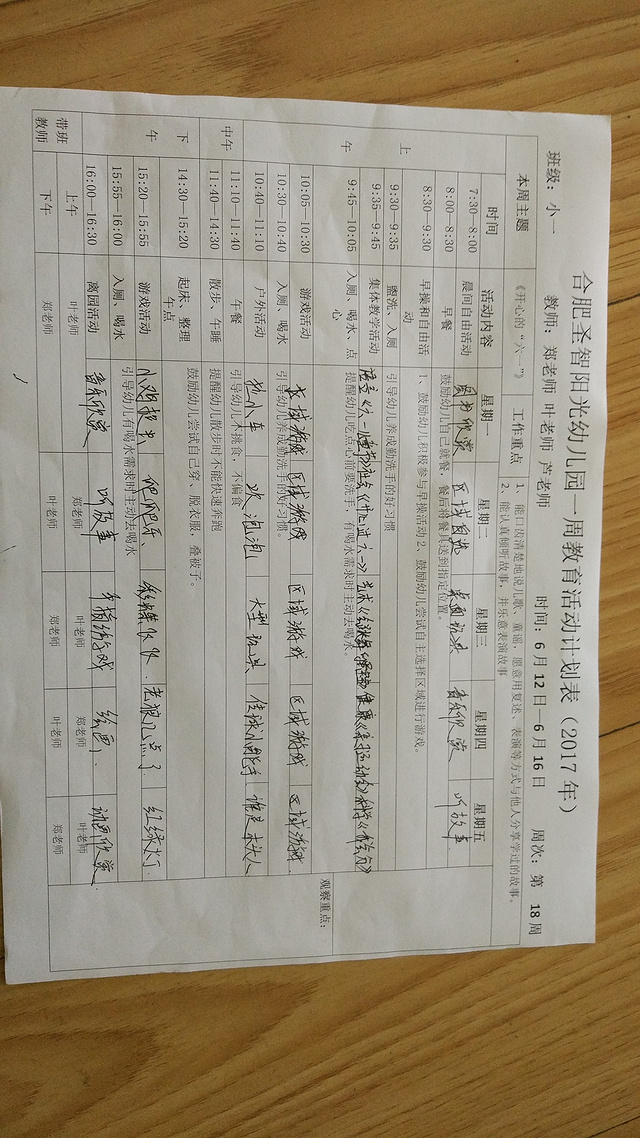 合肥圣智阳光幼儿园一周教育活动计划表（2017 年）
班级：小一 教师：郑老师 叶老师 芦老师 时间：6 月 12 日—6 月 16 日 周次：第 18 周
本周主题 《开心的“六一”》 工作重点 1、能口齿清楚地说儿歌、童谣，愿意用复述、表演等方式与他人分享学过的故事。
2、能认真倾听故事，并乐意表演故事
时间 活动内容 星期一 星期二 星期三 星期四 星期五
上午
7:30—8:00 晨间自由活动 图书欣赏 区域自选 桌面玩具 音乐欣赏 听故事
8:00—8:30 早餐 鼓励幼儿自己就餐，餐后将餐具送到指定位置。
8:30—9:30 早操和自由活动 1、鼓励幼儿积极参与早操活动 2、鼓励幼儿尝试自主选择区域进行游戏。
9:30—9:35 盥洗、入厕 引导幼儿养成勤洗手的好习惯
9:35—9:45 集体教学活动
9:45—10:05 入厕、喝水、点心 提醒幼儿吃点心前要洗手，有喝水需求时主动去喝水。
10:05—10:30 游戏活动 区域游戏 区域游戏 区域游戏 区域游戏 区域游戏
10:30—10:40 入厕、喝水 引导幼儿养成勤洗手的好习惯。
10:40—11:10 户外活动 拖小车 吹泡泡 大型玩具 传球小能手 谁是木头人
中午
11:10—11:40 午餐 引导幼儿不挑食，不偏食
11:40—14:30 散步、午睡 提醒幼儿散步时不能快速奔跑
下午
14:30—15:20 起床、整理午点 鼓励幼儿尝试自己穿、脱衣服，叠被子。
15:20—15:55 游戏活动 小鸡捉虫 爬爬乐 彩棒伙伴 老狼几点了 红绿灯
15:55—16:00 入厕、喝水 引导幼儿有喝水需求时主动去喝水
16:00—16:30 离园活动 音乐欣赏 听故事 手指游戏 绘画 动画欣赏
带班教师 上午 叶老师 郑老师 叶老师 郑老师 叶老师
下午 郑老师 叶老师 郑老师 叶老师 郑老师
观察重点：